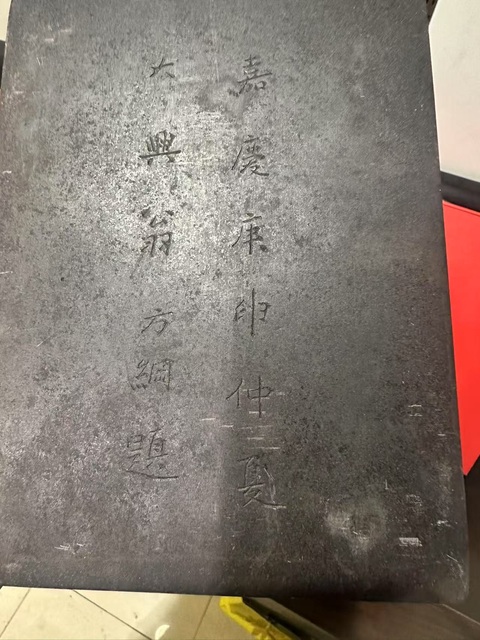 嘉慶庚申仲夏
大興翁方綱題